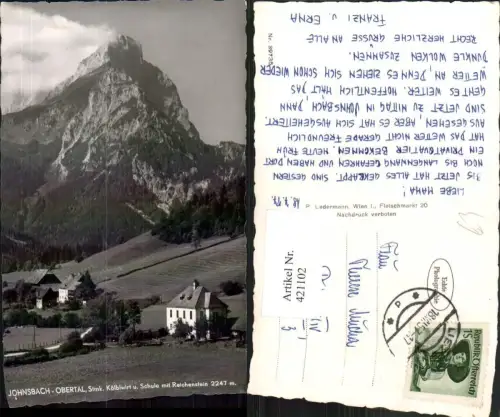 JOHNSBACH - OBERTAL, Stmk. Kölblwirt u. Schule mit Reichenstein 2247 m.
LIEBE MAMA!
BIS JETZT HAT ALLES GEKLAPPT. SIND GESTERN
NOCH BIS LANGENWANG GEFAHREN UND HABEN DORT
EIN PRIVATQUARTIER BEKOMMEN. HEUTE FRÜH
HAT DAS WETTER NICHT GERADE FREUNDLICH
AUSGESEHEN, ABER ES HAT SICH AUSGEHEITERT.
SIND JETZT ZU MITTAG IN JOHNSBACH, DANN
GEHT ES WEITER. HOFFENTLICH HÄLT DAS
WETTER AN, DENN ES ZIEHEN SICH SCHON WIEDER
DUNKLE WOLKEN ZUSAMMEN.
RECHT HERZLICHE GRÜSSE AN ALLE
FRANZI U. ERNA
P. Ledermann, Wien I., Fleischmarkt 20
Nachdruck verboten
Artikel Nr.
421102
Echte
Photographie
Frau
Wien
Republik Österreich